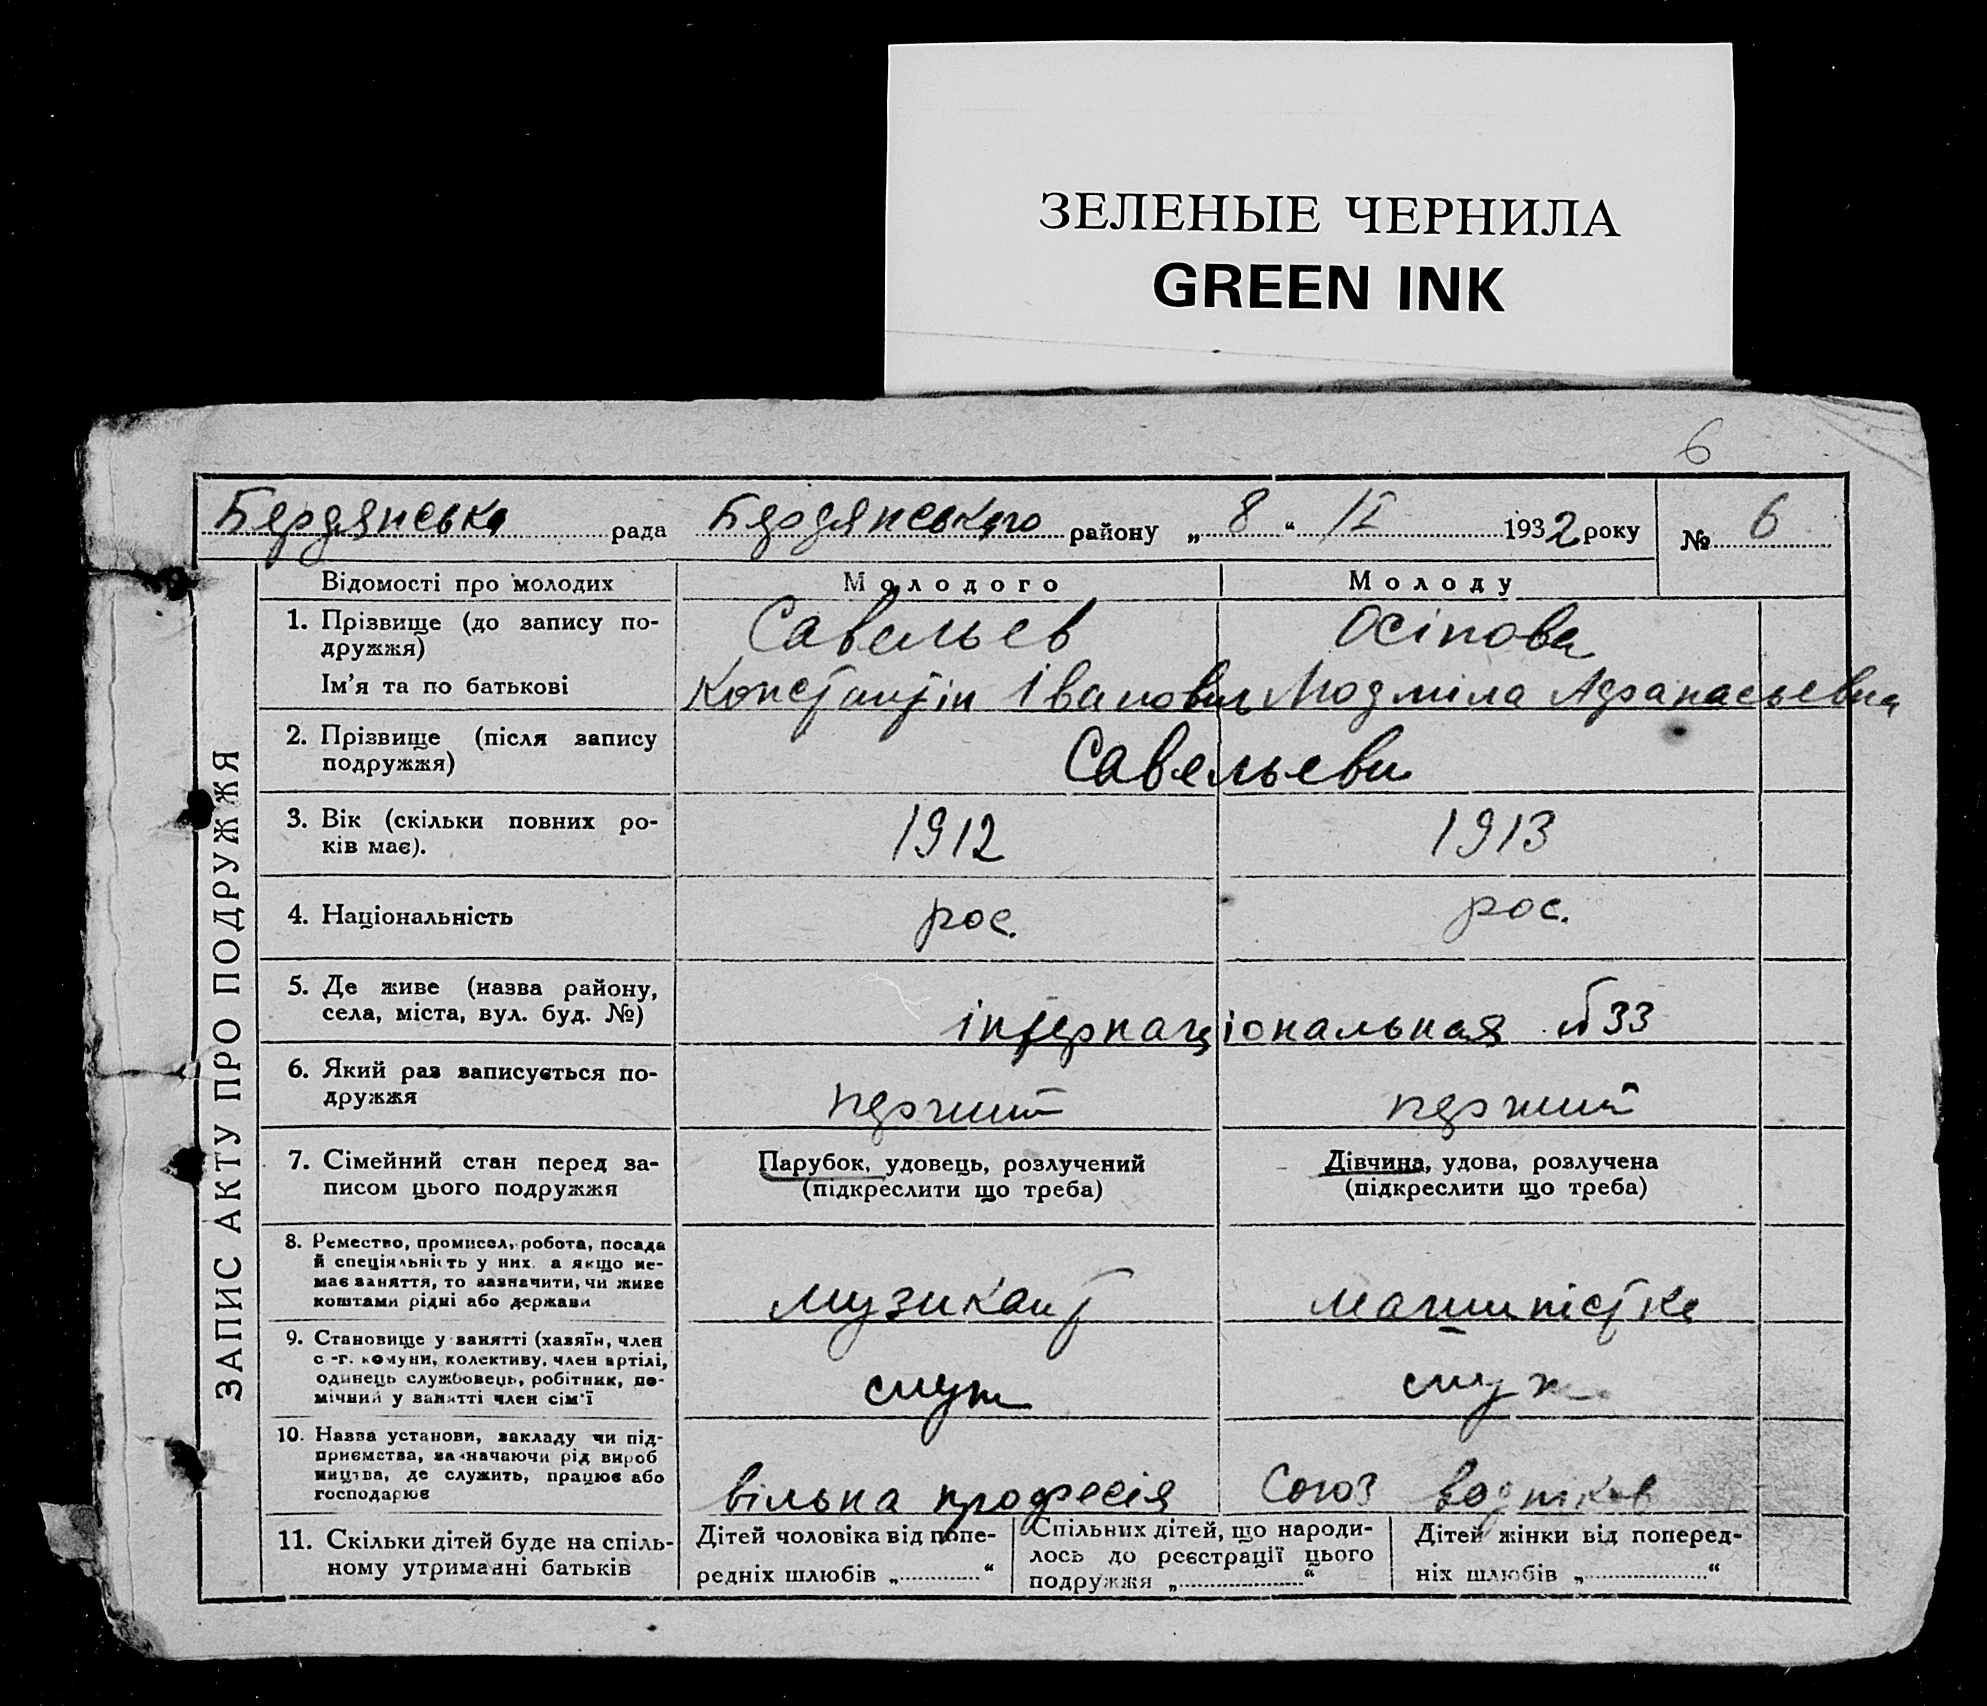 ЗЕЛЕНЫЕ ЧЕРНИЛА
GREEN INK
6
Бердянська рада Бердянського району „ 8 “ IX 1932 року № 6
ЗАПИС АКТУ ПРО ПОДРУЖЖЯ
Відомості про молодих Молодого Молоду
1. Прізвище (до запису по-
дружжя)
Савельев Осіпова
Ім’я та по батькові
Константін Іванович Людміла Афанасьевна
2. Прізвище (після запису
подружжя)
Савельеви
3. Вік (скільки повних ро-
ків має).
1912 1913
4. Національність рос. рос.
5. Де живе (назва району,
села, міста, вул. буд. №)
інтернаціональная № 33
6. Який раз записується по-
дружжя
перший перший
7. Сімейний стан перед за-
писом цього подружжя
Парубок, удовець, розлучений
(підкреслити що треба)
Дівчина, удова, розлучена
(підкреслити що треба)
8. Ремество, промисел, робота, посада
й спеціяльність у них. а якщо не-
має заняття, то зазначити, чи живе
коштами рідні або держави
музикант машиністка
9. Становище у занятті (хазяїн, член
с.-г. комуни, колективу, член артілі,
одинець службовець, робітник, по-
мічний у занятті член сім’ї
служ служ
10. Назва установи, закладу чи під-
приємства, зазначаючи рід вироб
ництва, де служить, працює або
господарює
вільна професія Союз водніков
11. Скільки дітей буде на спіль-
ному утриманні батьків
Дітей чоловіка від попе-
редніх шлюбів „ “
Спільних дітей, що народи-
лось до реєстрації цього
подружжя „ “
Дітей жінки від поперед-
ніх шлюбів „ “